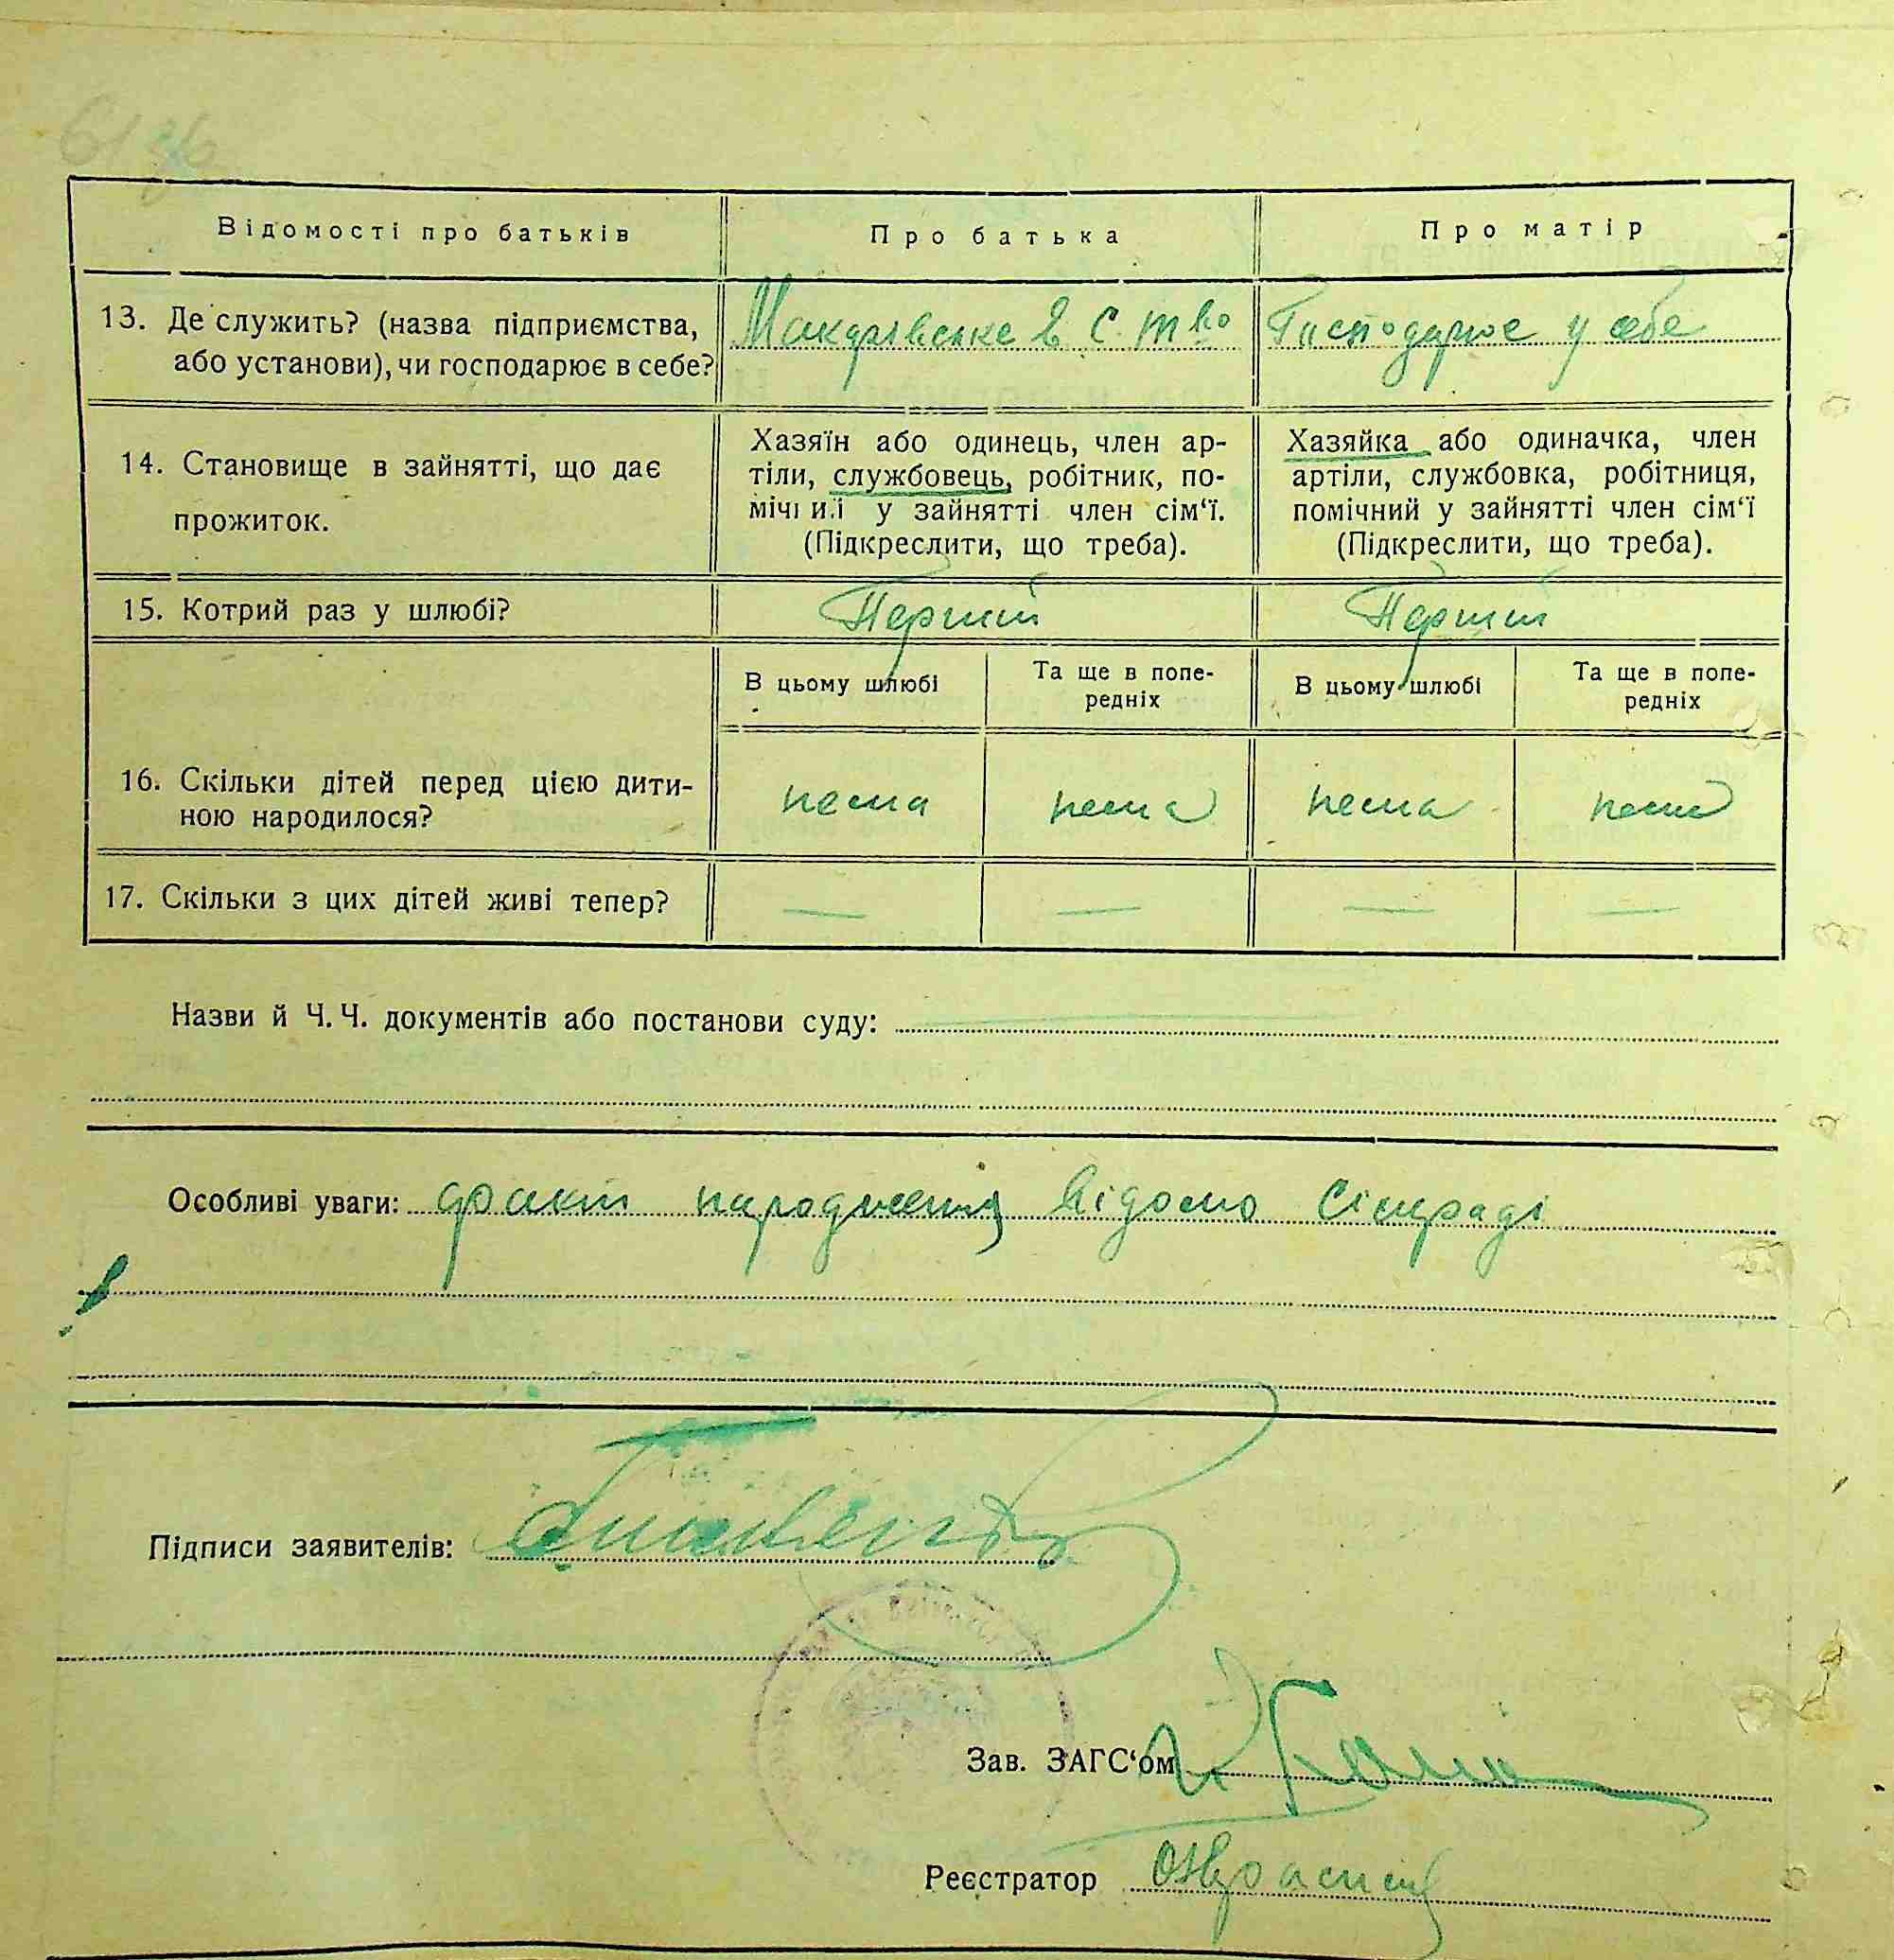 Відомості про батьків Про батька Про матір
13. Де служить? (назва підприємства, або установи), чи господарює в себе?
Макарівське С. Т-во
Господарює у себе
14. Становище в зайнятті, що дає прожиток.
Хазяїн або одинець, член ар-
тіли, службовець, робітник, по-
мічний у зайнятті член сім‘ї.
(Підкреслити, що треба).
Хазяйка або одиначка, член
артіли, службовка, робітниця,
помічний у зайнятті член сім‘ї
(Підкреслити, що треба).
15. Котрий раз у шлюбі? Перший Перший
В цьому шлюбі
Та ще в попе-
редніх
В цьому шлюбі
Та ще в попе-
редніх
16. Скільки дітей перед цією дити-
ною народилося?
нема нема нема нема
17. Скільки з цих дітей живі тепер? — — — —
Назви й Ч. Ч. документів або постанови суду:
Особливі уваги: факт народження відомо Сільраді
Підписи заявителів:
Зав. ЗАГС‘ом
Реєстратор